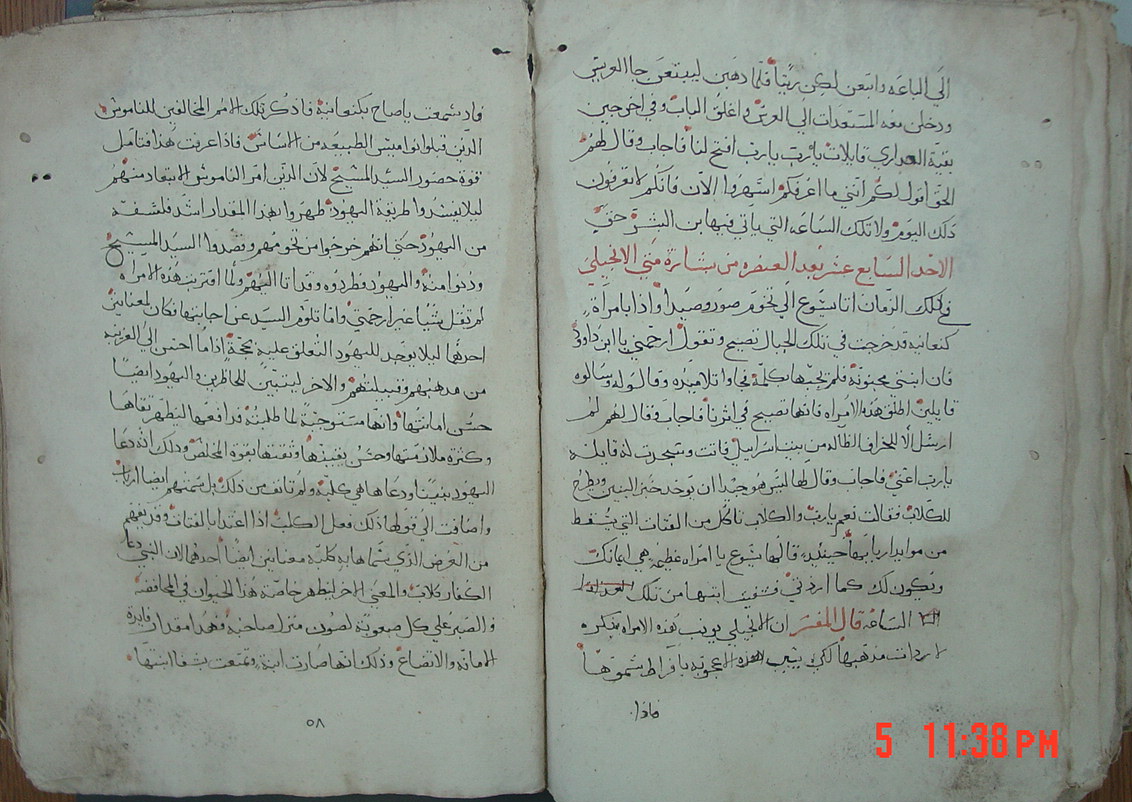 الَي الباعَه وابتعن لكن زيتاً فلما دهبن ليبتعن جا العريس
ودخلن معه المستعدات الي العرس واغلق الباب وفي اخرجين
بقيّة العداري قايلات يارب يارب افتح لنا فاجاب وقال لهُم
الحق اقول لكُم انني ما اعرفكم اسهروا الآن فانكم لا تعرفون
دلك اليوم ولا تلك السَاعه التي ياتي فيها بن البشر حق
الاحد السَابع عشر بعد العنصره من بشارة متي الانجيلي
في دلك الزمان اتا يسوع الي تخوم صور وصيدا واذا بامراة
كنعانيه قد خرجت في تلك الجبال تصيح وتقول ارحمني يا ابن داوود
فان ابنتي مجنونة فلم يجبها بكلمة فجاوا تلاميده وسالوه
قايلين اطلق هذه الامراه فانها تصيح في اثرنا فاجاب وقال لهم لم
ارسل الا للخراف الظاله من بيت اسراييل فاتت وسجدت له قايله
يارب اعني فاجاب وقال لها ليس هو جيدا ان يوخد خبز البنين ويطرح
للكلاب فقالت نعم يارب والكلاب تاكل من الفتات التي يسقط
من موايد اربابها حينيد قال لها يسوع يا امراه عظيمه هي امانتك
وليكون لك كما اردتي فشفيت ابنتها من تلك
السَاعَه قال المفسر ان الانجيلي هذه الامراه
مدهبها لكي هذه الاعجوبه بافراط
ماذا
فاد سمعت يا صاح بكنعانية فادكر تلك الامم المخالفين للناموس
الدين قبلوا نواميس الطبيعه من الاساس فاذا عرفت هدا فتامل
قوة حضور السيد المسيح لان الدين امر الناموس الابتعاد منهم
ليلا يفسدوا طريقة اليهود ظهروا بهدا المقدار اشد فلسفة
من اليهود حتي انهم خرجوا من تخومهم وقصدوا السيد المسيح
ودنوا منه واليهود فطردوه وقد اتا اليهم ولما اقتربت هذه الامراه
لم تقل شيا غير ارحمني وانما تلوم السيد عن اجابتها فكان لمعنايين
احدها ليلا يوجد لليهود التعلق عليه بحجة اذا ما احسن الي الغريبة
من مدهبهم وقبيلتهم والاخر ليتبين للحاظرين واليهود ايضا
حسن امانتها وانها مستوجبة لما طلبته فدافعها ليظهر تقاها
وكثرة ملازمتها وحسن يقينها وثقتها بقوة المخلص ودلك انه دعا
اليهود بنين ودعاها هي كلبة ولم تانف من دلك بل سمتهم ايضا ارباب
واضافت الي قولها دلك فعل الكلب اذا اغتدا بالفتات
من الغرض الذي سماها به كلبة معنايين ايضا احدهما لان النبي دعا
الكفار كلاب والمعني الاخر ليظهر خاصة هذا الحيوان في المحافظه
والصبر علي كل صعوبة لصون منزل صاحبه فهدا مقدار فايدة
الامانه والاتضاع ودلك انها صارت ابنة وتمتعت بشفا ابنتها
٥٨
5 11:38 PM